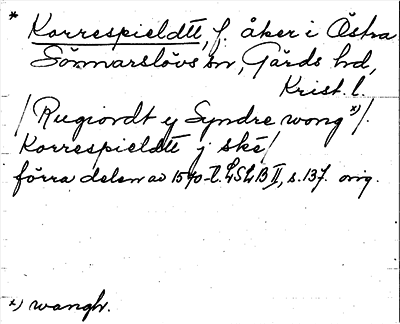 * Korrespieldtt, f. åker i Östra
Sönnarslövs sn, Gärds hd,
Krist. l.
/Rugiordt ej Syndre wong *)/.
Korrespieldtt j ské/
förra delen av 1590-t. LSLB II, s. 137. orig.
*) wangh.